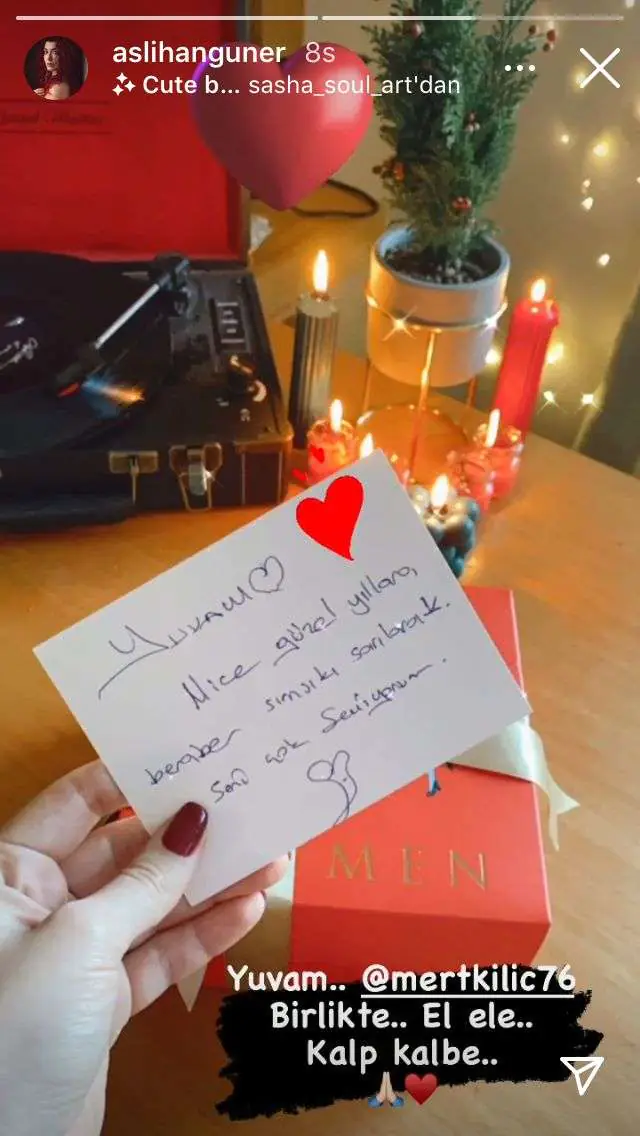 aslihanguner 8s
Cute b... sasha_soul_art'dan
Yuvam
Nice güzel yıllara,
beraber sımsıkı sarılarak.
Seni çok Seviyorum.
MEN
Yuvam.. @mertkilic76
Birlikte.. El ele..
Kalp kalbe..